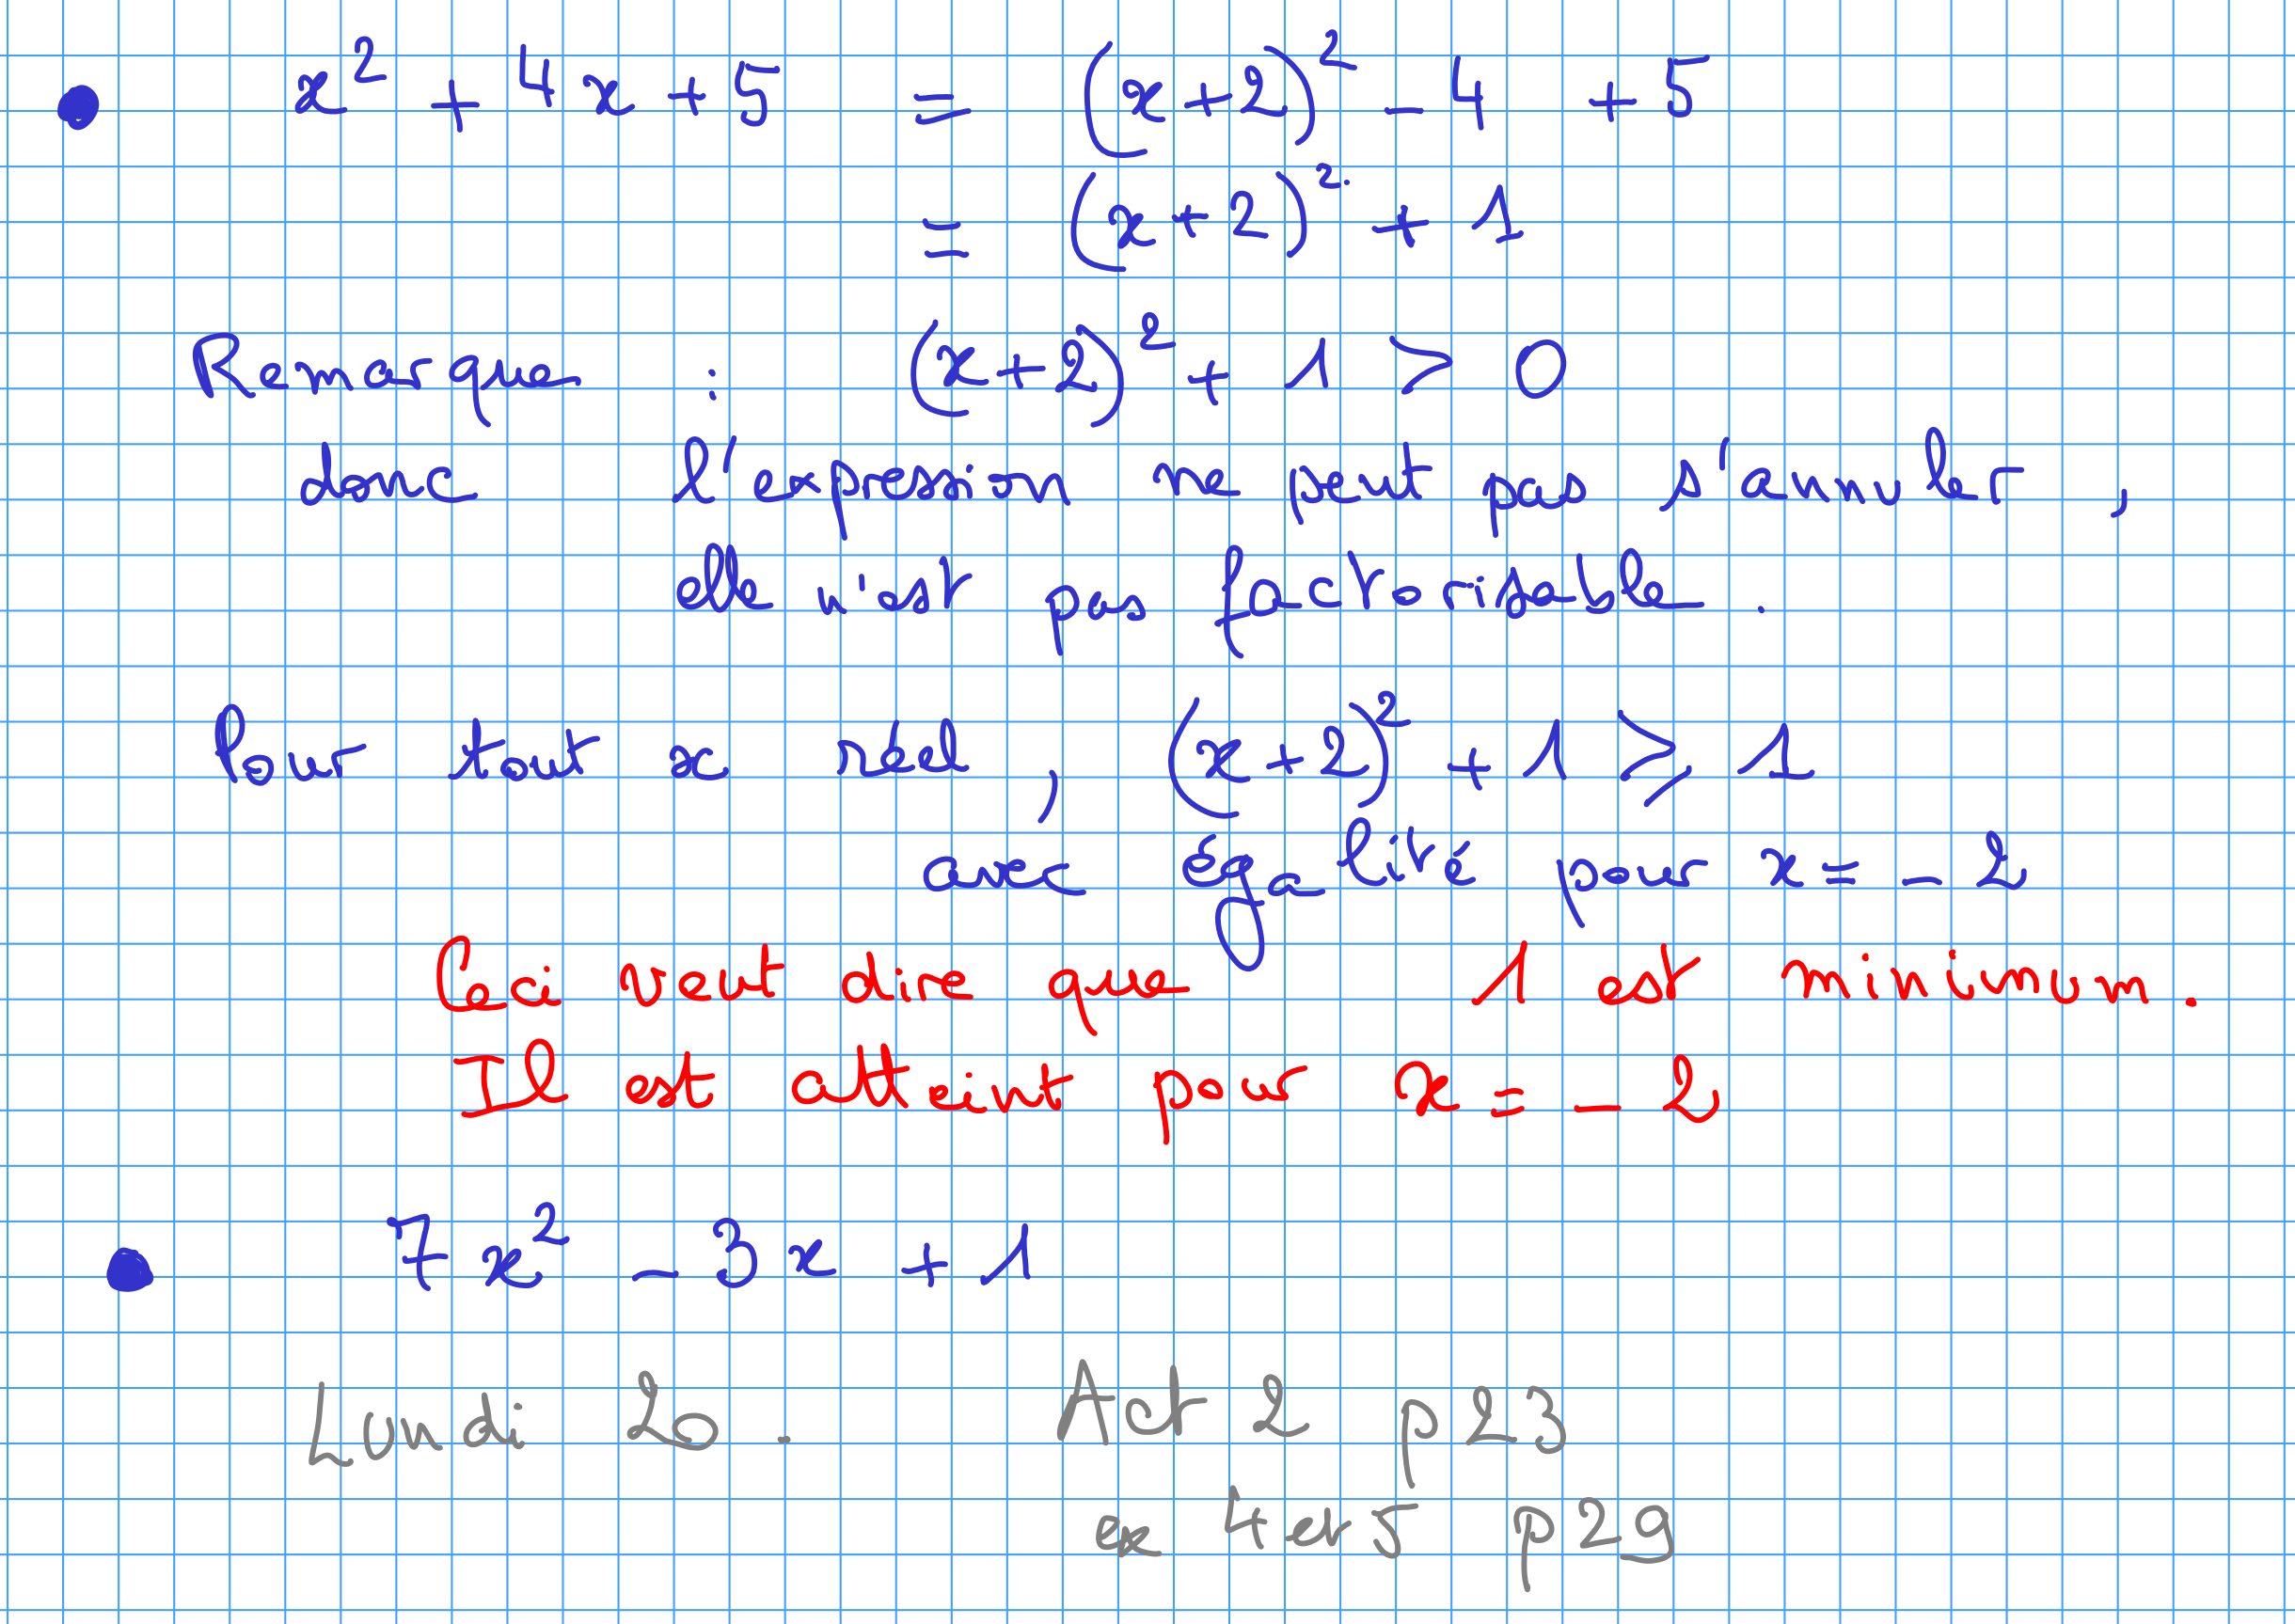 • x² + 4x + 5 = (x+2)² - 4 + 5
= (x+2)² + 1
Remarque : (x+2)² + 1 > 0
donc l'expression ne peut pas s'annuler,
elle n'est pas factorisable.
Pour tout x réel, (x+2)² + 1 ⩾ 1
avec égalité pour x = - 2
Ceci veut dire que 1 est minimum.
Il est atteint pour x = - 2
• 7x² - 3x + 1
Lundi 20 . Act 2 p23
ex 4 et 5 p29